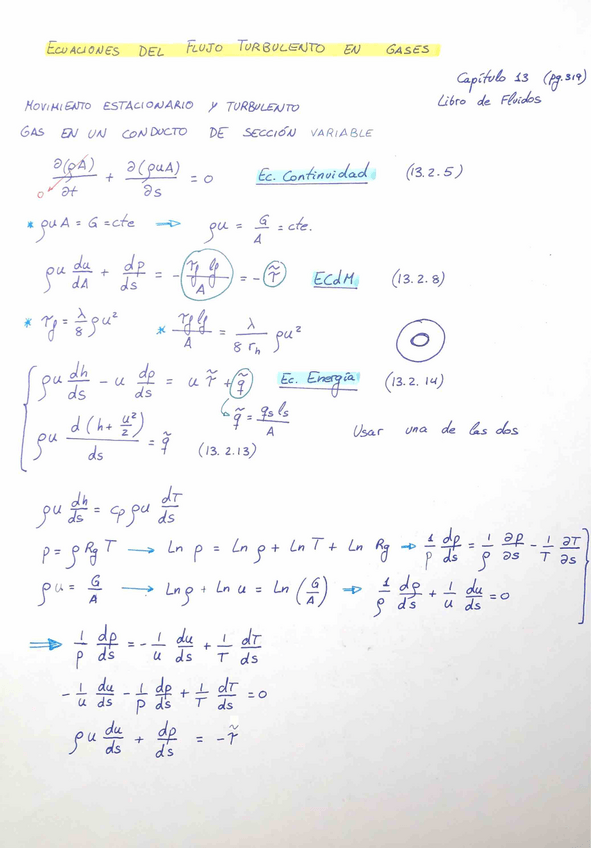 ECUACIONES DEL FLUJO TURBULENTO EN GASES
Capítulo 13 (pg.319)
Libro de Fluidos
MOVIMIENTO ESTACIONARIO Y TURBULENTO
GAS EN UN CONDUCTO DE SECCIÓN VARIABLE
∂(ρA)/∂t + ∂(ρuA)/∂s = 0 Ec. Continuidad (13.2.5)
0
* ρuA = G = cte → ρu = G/A = cte.
ρu du/dA + dp/ds = - τp lp/A = - τ̃ ECdM (13.2.8)
* τp = λ/8 ρu² * τp lp/A = λ/(8 rh) ρu²
ρu dh/ds - u dp/ds = u τ̃ + q̃ Ec. Energía (13.2.14)
q̃ = qs ls/A
ρu d(h + u²/2)/ds = q̃ (13.2.13) Usar una de las dos
ρu dh/ds = cp ρu dT/ds
p = ρ Rg T → Ln p = Ln ρ + Ln T + Ln Rg → 1/p dp/ds = 1/ρ ∂ρ/∂s - 1/T ∂T/∂s
ρu = G/A → Ln ρ + Ln u = Ln (G/A) → 1/ρ dρ/ds + 1/u du/ds = 0
⇒ 1/p dp/ds = - 1/u du/ds + 1/T dT/ds
- 1/u du/ds - 1/p dp/ds + 1/T dT/ds = 0
ρu du/ds + dp/ds = - τ̃